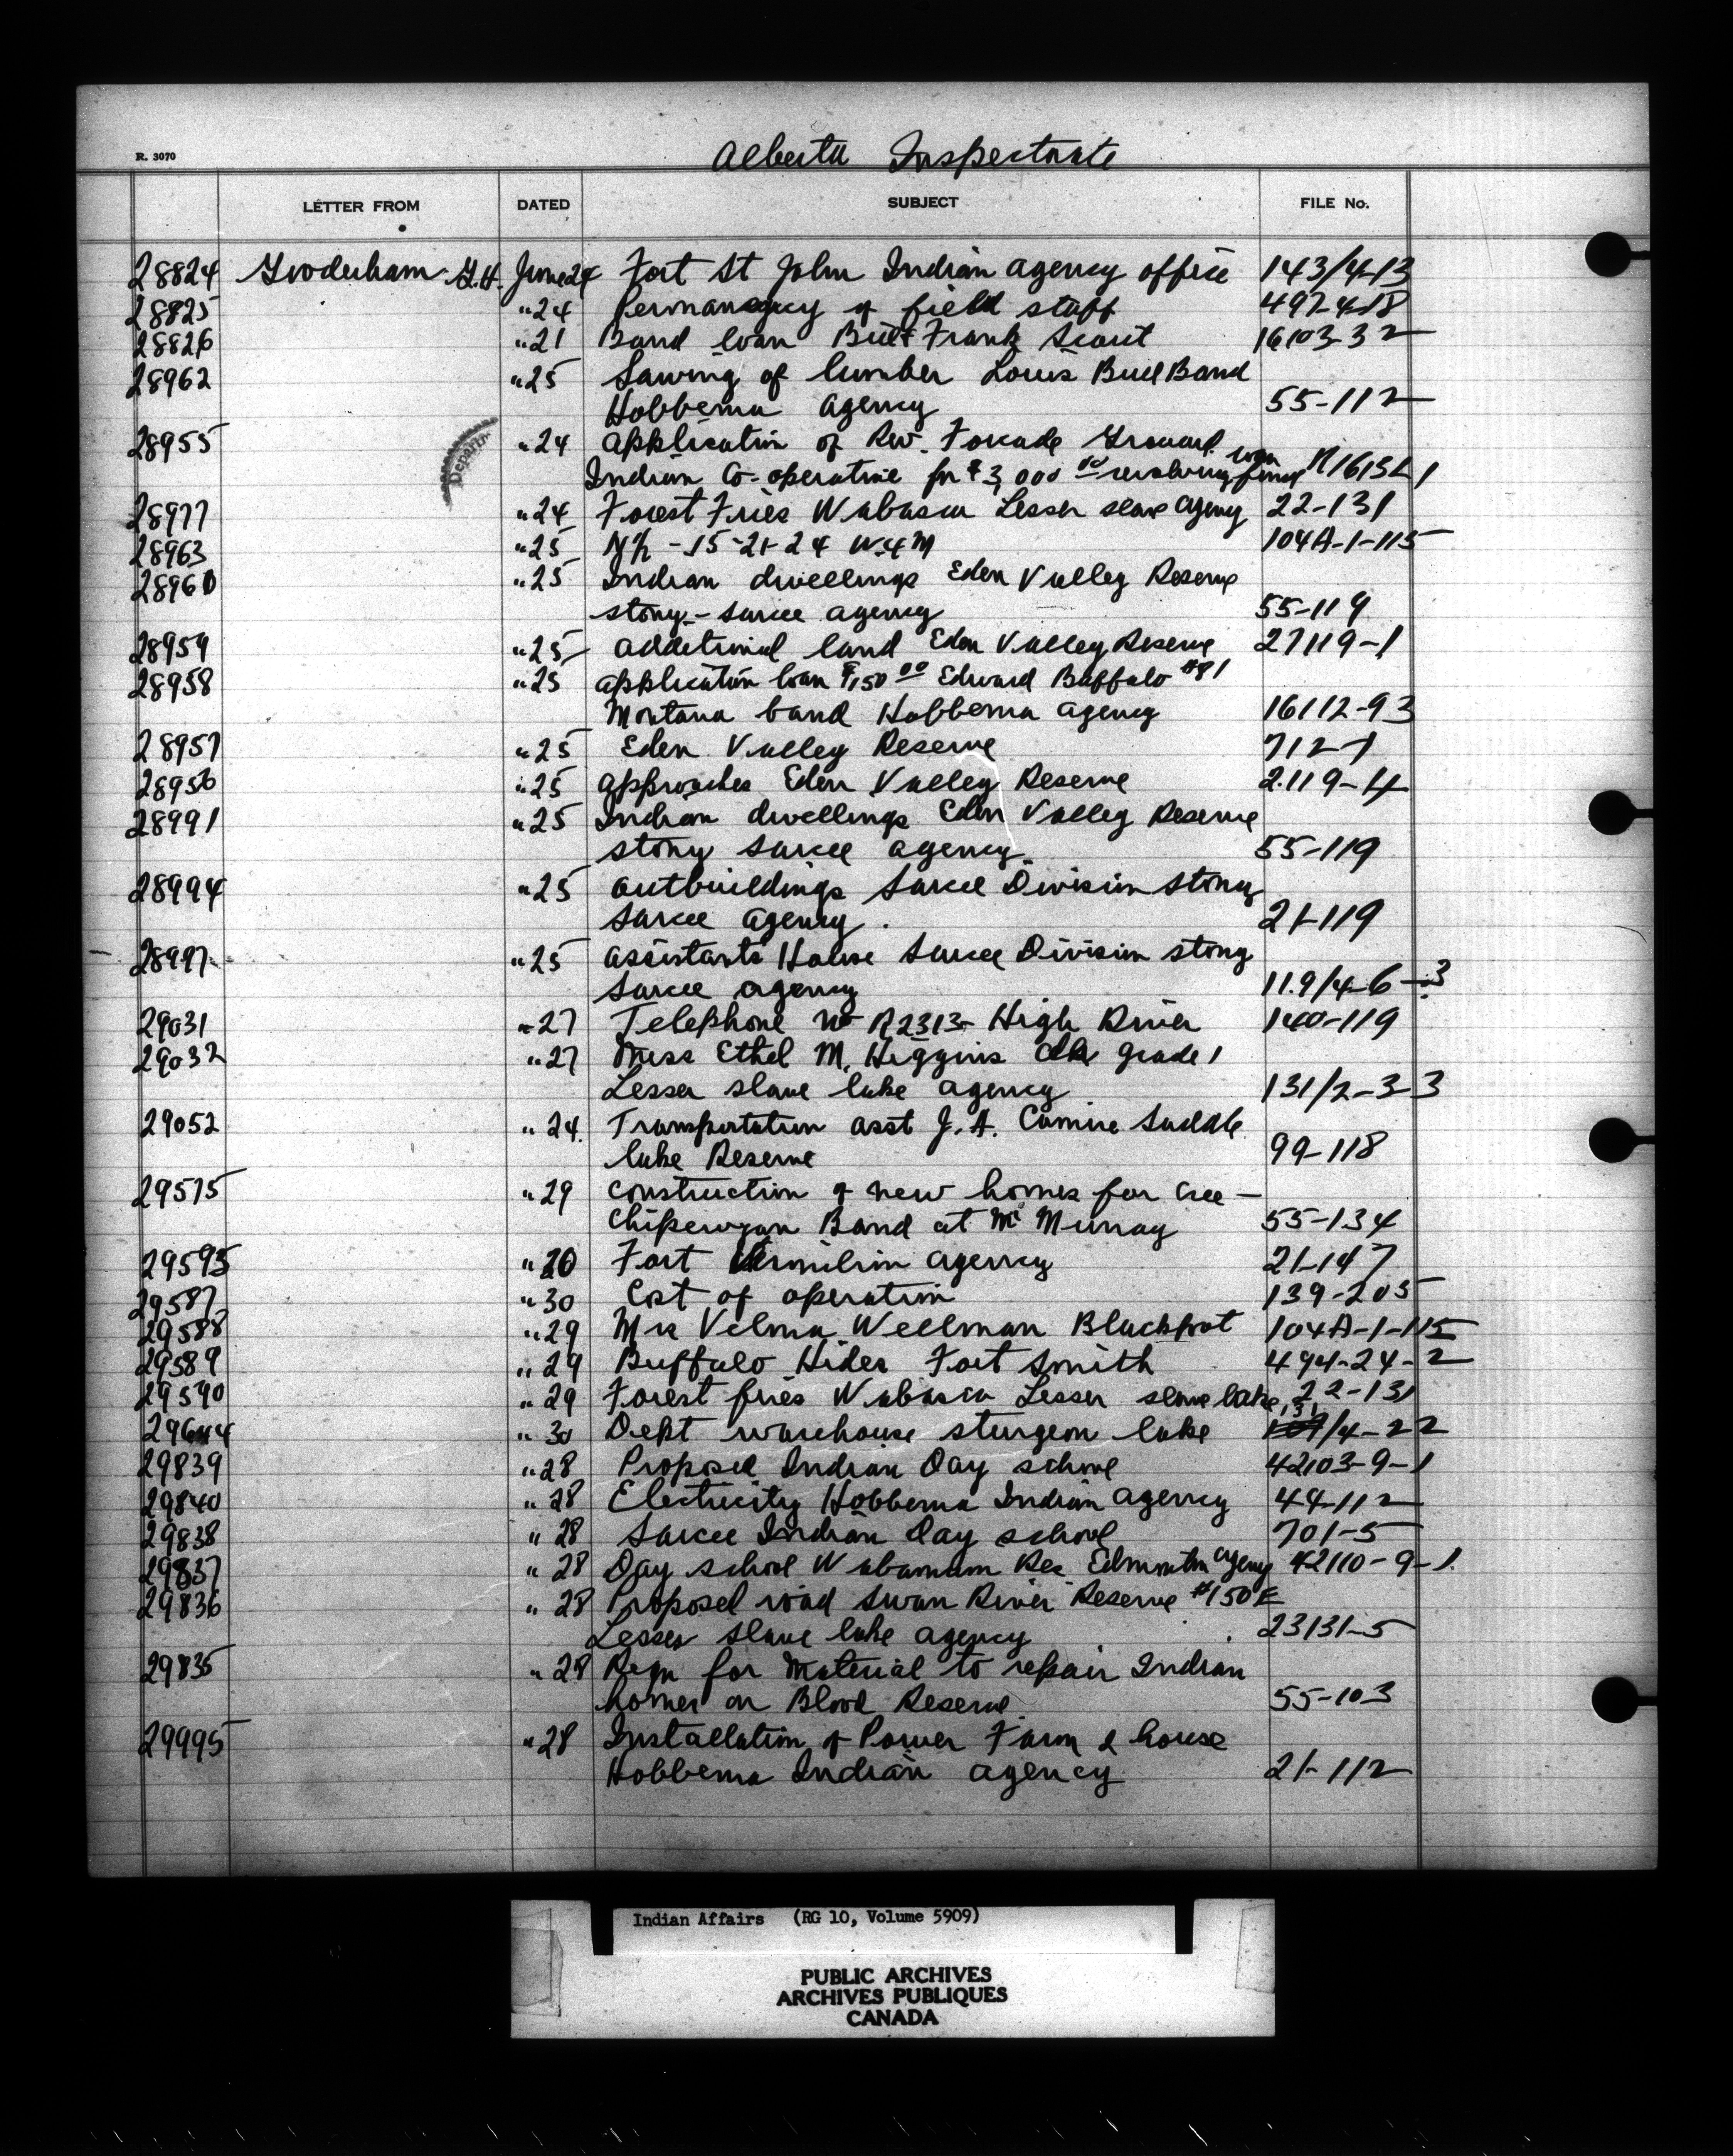 R. 3070
Alberta Inspectorate
LETTER FROM DATED SUBJECT FILE No.
28824 Gooderham G.H. June 24 Fort St John Indian agency office 143/4-13
28825 " 24 Permanency of field staff 497-4-18
28826 " 21 Band loan Frank Scout 16103-32
28962 " 25 Sawing of lumber Louis Bull Band
Hobbema agency 55-112
Depart
28955 " 24 Application of Rev. Forcade Grouard
Indian Co-operative for $3,000 00 revolving loan fund
28977 " 24 Forest Fires Wabasca Lesser slave agency 22-131
28963 " 25 N½ - 15-21-24 W.4M 104A-1-115
28960 " 25 Indian dwellings Eden Valley Reserve
stony - sarcee agency 55-119
28959 " 25 additional land Eden Valley Reserve 27119-1
28958 " 25 application loan $150 00 Edward Buffalo #81
Montana band Hobbema agency 16112-93
28957 " 25 Eden Valley Reserve 712-1
28956 " 25 approaches Eden Valley Reserve 2.119-4
28991 " 25 Indian dwellings Eden Valley Reserve
stony sarcee agency. 55-119
28994 " 25 outbuildings Sarcee Division stony
sarcee agency. 21-119
28997 " 25 assistants House Sarcee Division stony
sarcee agency 119/4-6-3
29031 " 27 Telephone No R2313 - High River 140-119
29032 " 27 Miss Ethel M. Higgins clk grade 1
Lesser slave lake agency 131/2-3-3
29052 " 24. Transportation asst J.A. Camire Saddle
lake Reserve 99-118
29575 " 29 construction of new homes for Cree -
Chipewyan Band at Mc Murray 55-134
29595 " 20 Fort Vermilion agency 21-147
29587 " 30 Cost of operation 139-205
29588 " 29 Mrs Velma Wellman Blackfoot 104A-1-115
29589 " 29 Buffalo Hides Fort Smith 494-24-2
29590 " 29 Forest fires Wabasca Lesser slave lake, 22-131
29644 " 30 Dept warehouse sturgeon lake 131/4-22
29839 " 28 Proposed Indian Day school 42103-9-1
29840 " 28 Electricity Hobbema Indian agency 44-112
29838 " 28 Sarcee Indian Day school 701-5
29837 " 28 Day school Wabamum Res Edmonton agency 42110-9-1.
29836 " 28 Proposed road Swan River Reserve #150E
Lesser slave lake agency 23131-5
29835 " 28 Reqn for Material to repair Indian
homes on Blood Reserve 55-103
29995 " 28 Installation of Power Farm & house
Hobbema Indian agency 21-112
Indian Affairs (RG 10, Volume 5909)
PUBLIC ARCHIVES
ARCHIVES PUBLIQUES
CANADA